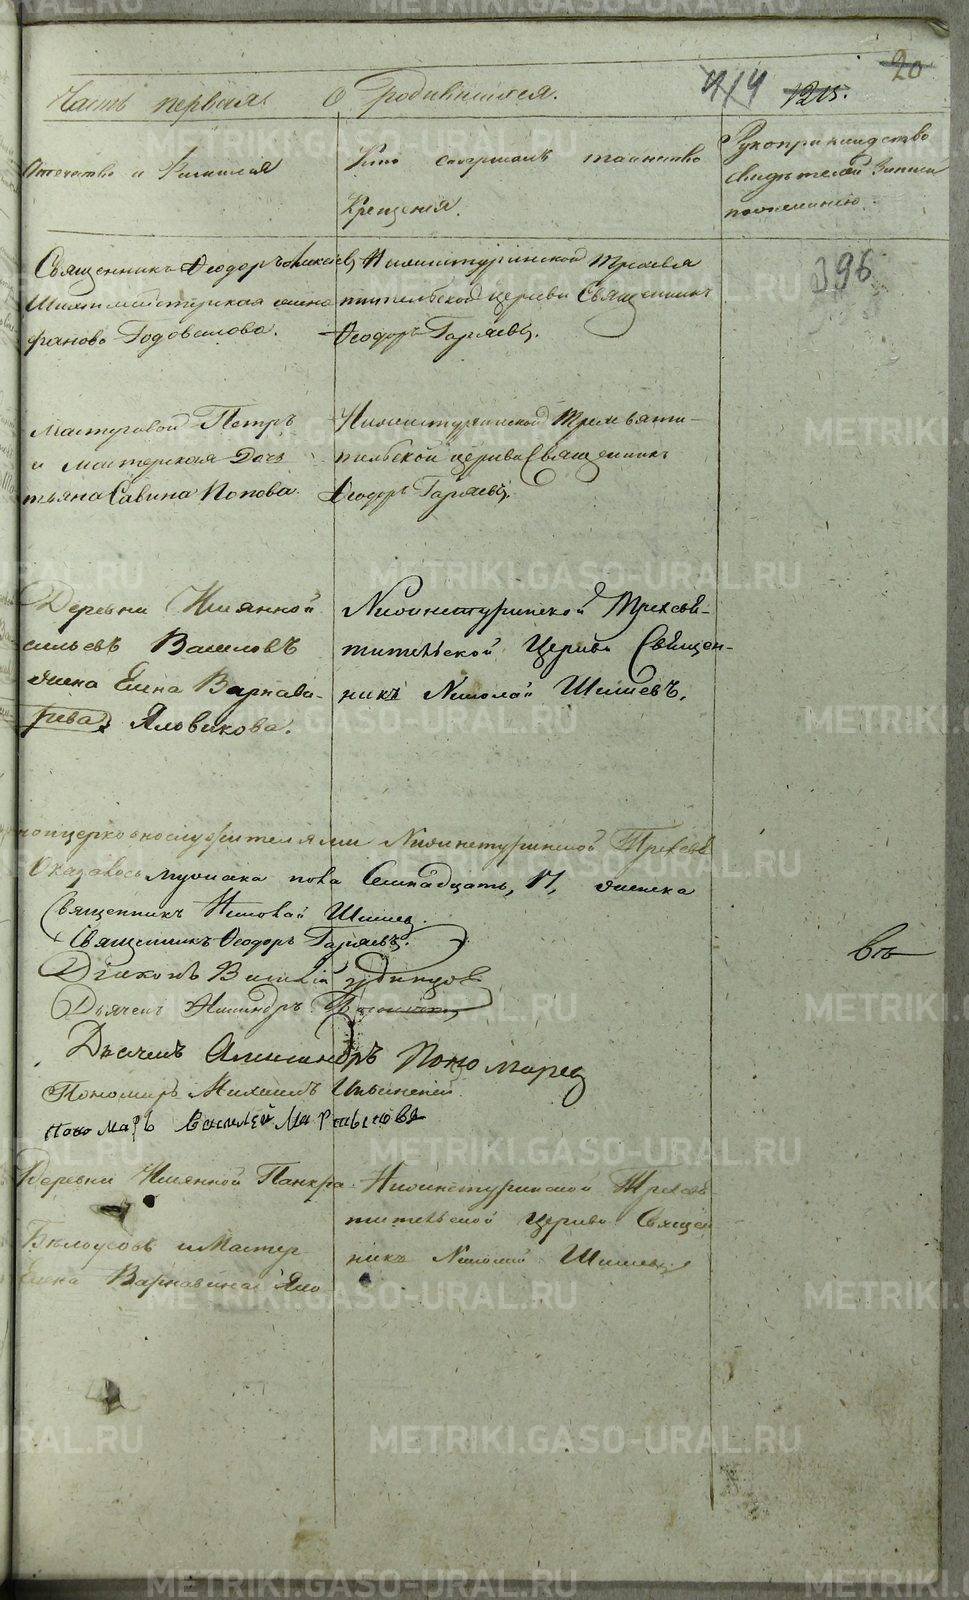 20
Часть первая О родившихся. 414 1215.
Отчество и Фамилия
Кто совершалъ таинство
Крещения.
Рукоприкладство
свидѣтелей записи
по желанию.
396
Священникъ Феодоръ
фанова Годовалова.
Нижнетуринской Трехсвя
тительской церкви Священникъ
Феодоръ Гаряевъ.
Мастеровой Петръ
и Мастерская Дочь
тьяна Савина Попова.
Нижнетуринской Трехсвяти-
тельской церкви Священникъ
Феодоръ Гаряевъ.
Деревни Имянной
сильевъ Вашловъ
жена Елена Варнави-
Яловикова.
Нижнетуринской Трехсвя-
тительской Церкви Священ-
никъ Николай Шишевъ.
ноцерковнослужителями Нижнетуринской Трехсвя
Оказалось мужеска пола Семнадцать, 17, женска
Священникъ Николай Шишев.
Священникъ Феодоръ Гаряевъ.
Въ
Диаконъ Василий Удинцов
Дьячекъ
Дьячекъ Александръ Пономарев
Пономарь Михаилъ Ильинский
пономарь Василей Мартыновъ
Деревни Имянной Панкра
Бѣлоусовъ и Мастер
Елена Варнавина Яло
Нижнетуринской Трехсвя
тительской Церкви Священ
никъ Николай Шишевъ.
METRIKI.GASO-URAL.RU